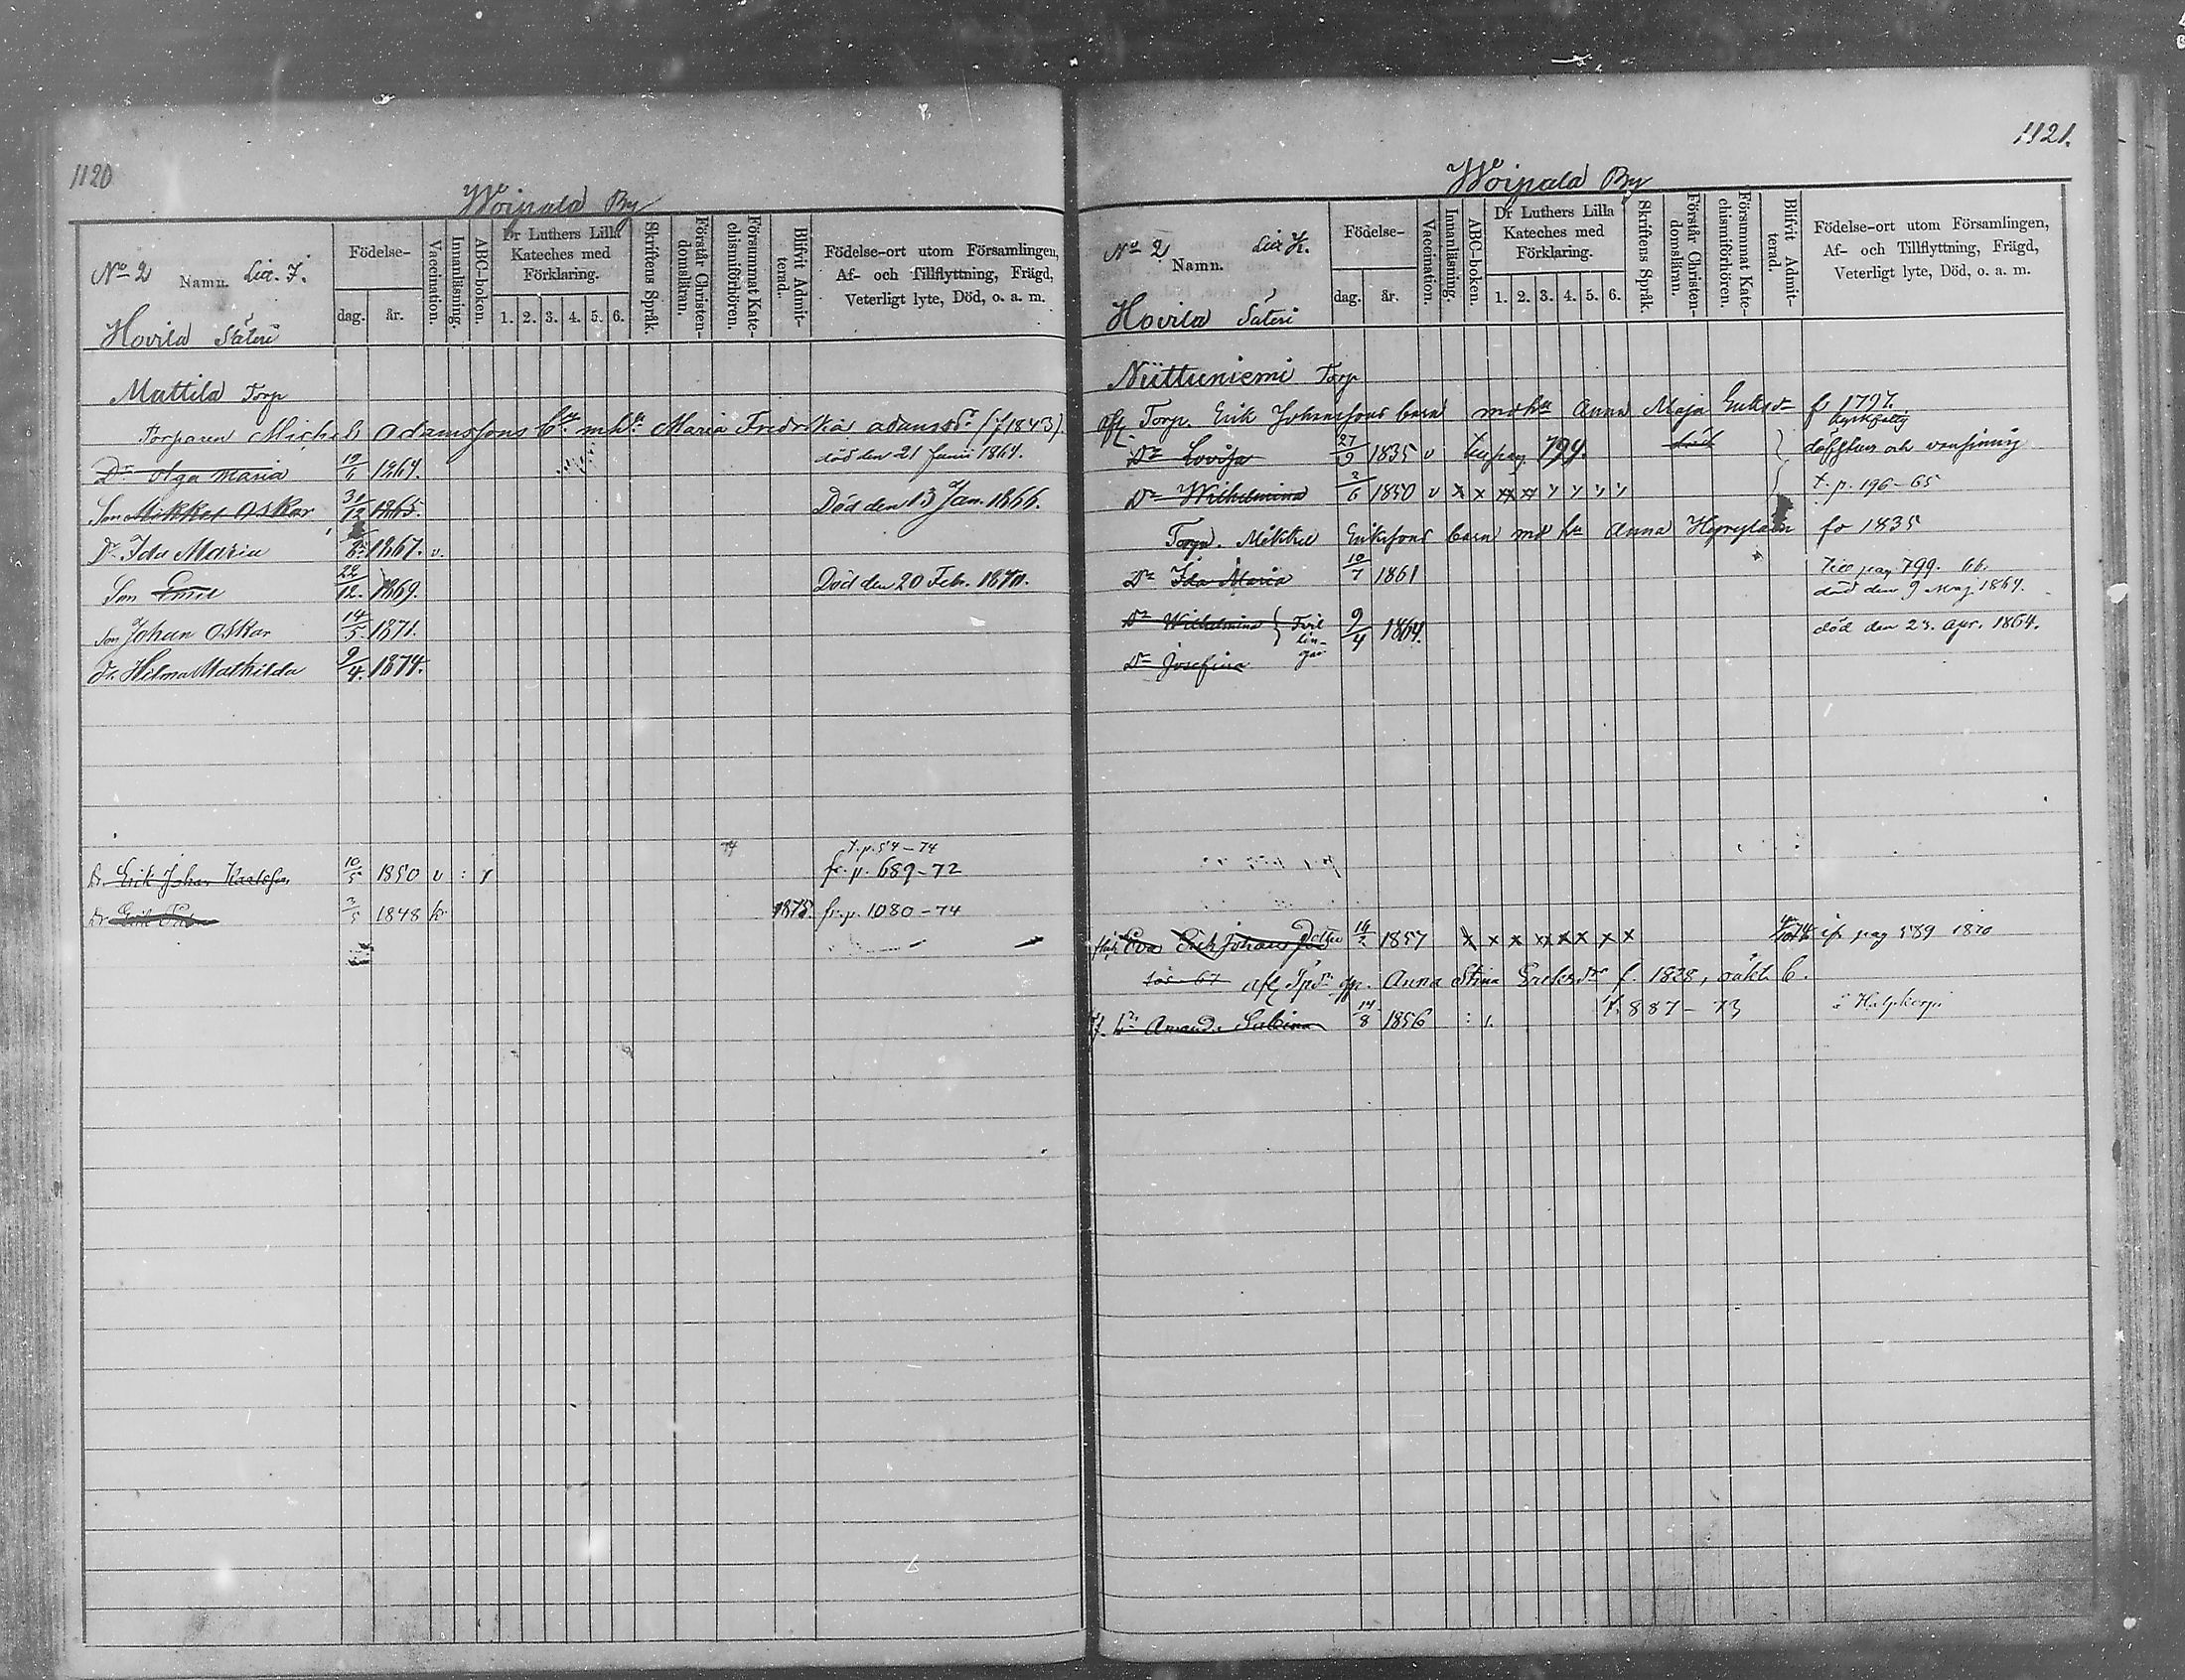 1120
Woipala By
No 2 Namn. Litt. J.
Hovila Säteri
Födelse-
dag. år.
Vaccination.
Innanläsning.
ABC-boken.
Dr Luthers Lilla
Kateches med
Förklaring.
1. 2. 3. 4. 5. 6.
Skriftens Språk.
Förstår Christen-
domsläran.
Försummat Kate-
chismiförhören.
Blifvit Admit-
terad.
Födelse-ort utom Församlingen,
Af- och Tillflyttning, Frägd,
Veterligt lyte, Död, o. a. m.
Mattila Torp
Torparen Michel Adamssons bn mhu Maria Fredrika Adamsdr (f 1843).
Dr Olga Maria 19/6 1864. död den 21 Junii 1864.
Son Mikkel Oskar 31/12 1865. Död den 13 Jan. 1866.
Dr Ida Maria 1867. v.
Son Emil 22/12. 1869. Död den 20 Feb. 1870.
Son Johan Oskar 14/5 1871.
dr. Hilma Mathilda 9/4. 1874.
74 t. p. 54-74
Dr. Erik Johan Karlsson 10/5 1850 v fr. p. 689-72
Dr 3/5 1848 kr 1875 fr. p. 1080-74
1121.
Woipala By
No 2 Namn. Litt. K.
Hovila Säteri
Födelse-
dag. år.
Vaccination.
Innanläsning.
ABC-boken.
Dr Luthers Lilla
Kateches med
Förklaring.
1. 2. 3. 4. 5. 6.
Skriftens Språk.
Förstår Christen-
domsläran.
Försummat Kate-
chismiförhören.
Blifvit Admit-
terad.
Födelse-ort utom Församlingen,
Af- och Tillflyttning, Frägd,
Veterligt lyte, Död, o. a. m.
Niittuniemi Torp
afl. Torp. Erik Johanssons barn med hu Anna Maja Eriksdr f. 1797.
Dr Lovisa 27/9 1835 v Se pag. 799. döfstum och vansinnig
Dr Wilhelmina 2/6 1850 v x x x x t. p. 196-65
Torp. Mikkel Erikssons barn md hu Anna fö 1835
Dr Ida Maria 10/7 1861 Till pag 799. 66.
död den 9 Maj 1864.
Dr Wilhelmina } Tvil 9/4 1864. död den 23. Apr. 1864.
lin-
gar
Dr Josefina
Eva Erik Johans Dotter 14/2 1857 x x x x x x x x pag 589 1870
afl. Anna Stina Eriksdr f. 1828, oäkt b.
Dr Amanda Sabina 14/8 1856 T. 887-73